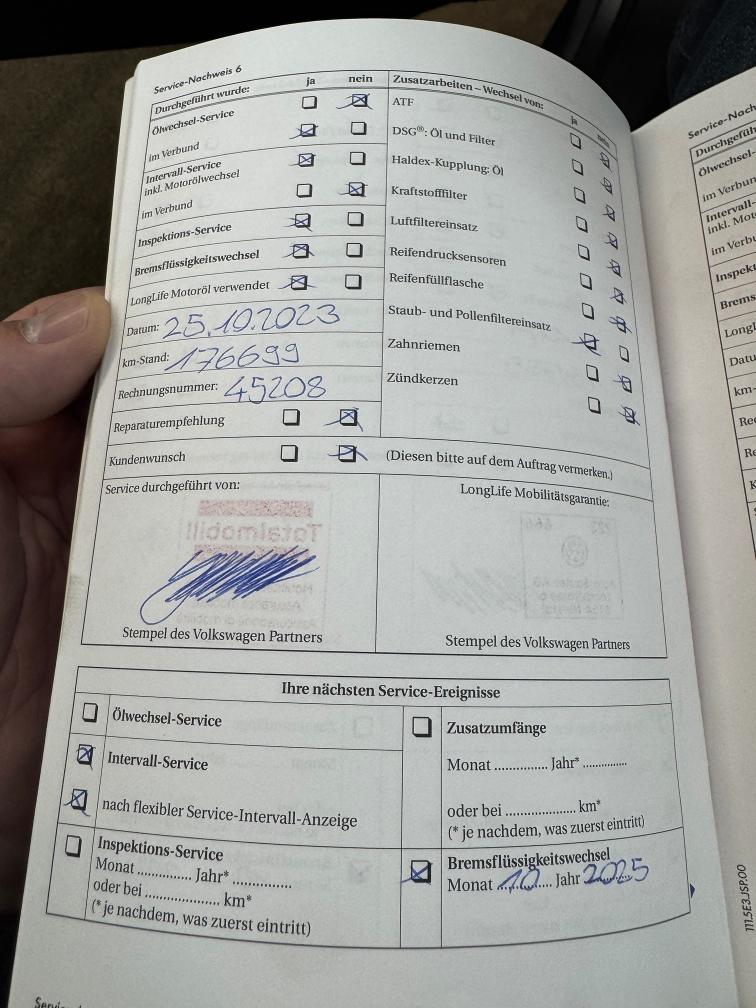 Service-Nachweis 6
Durchgeführt wurde: ja nein
Ölwechsel-Service
im Verbund
Intervall-Service
inkl. Motorölwechsel
im Verbund
Inspektions-Service
Bremsflüssigkeitswechsel
LongLife Motoröl verwendet
Datum: 25.10.2023
km-Stand: 176699
Rechnungsnummer: 45208
Reparaturempfehlung
Kundenwunsch
Zusatzarbeiten – Wechsel von: ja nein
ATF
DSG®: Öl und Filter
Haldex-Kupplung: Öl
Kraftstofffilter
Luftfiltereinsatz
Reifendrucksensoren
Reifenfüllflasche
Staub- und Pollenfiltereinsatz
Zahnriemen
Zündkerzen
(Diesen bitte auf dem Auftrag vermerken.)
Service durchgeführt von:
Totalmobil!
Stempel des Volkswagen Partners
LongLife Mobilitätsgarantie:
Stempel des Volkswagen Partners
Ihre nächsten Service-Ereignisse
Ölwechsel-Service
Intervall-Service
nach flexibler Service-Intervall-Anzeige
Inspektions-Service
Monat ............. Jahr* ..............
oder bei ................... km*
(* je nachdem, was zuerst eintritt)
Zusatzumfänge
Monat .............. Jahr* ............
oder bei .................. km*
(* je nachdem, was zuerst eintritt)
Bremsflüssigkeitswechsel
Monat 10 Jahr 2025
111.5E3.JSP.00
Service-Nach
Durchgefüh
Ölwechsel-
im Verbun
Intervall-
inkl. Mot
im Verbu
Inspekt
Brems
Longl
Datu
km-
Re
Re
K